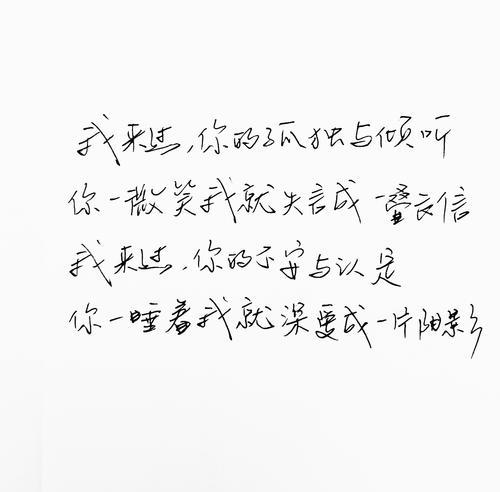 我来过,你的孤独与倾听
你一微笑我就失言成一叠衣信
我来过,你的不安与认是
你一睡着我就深
成一片阴影